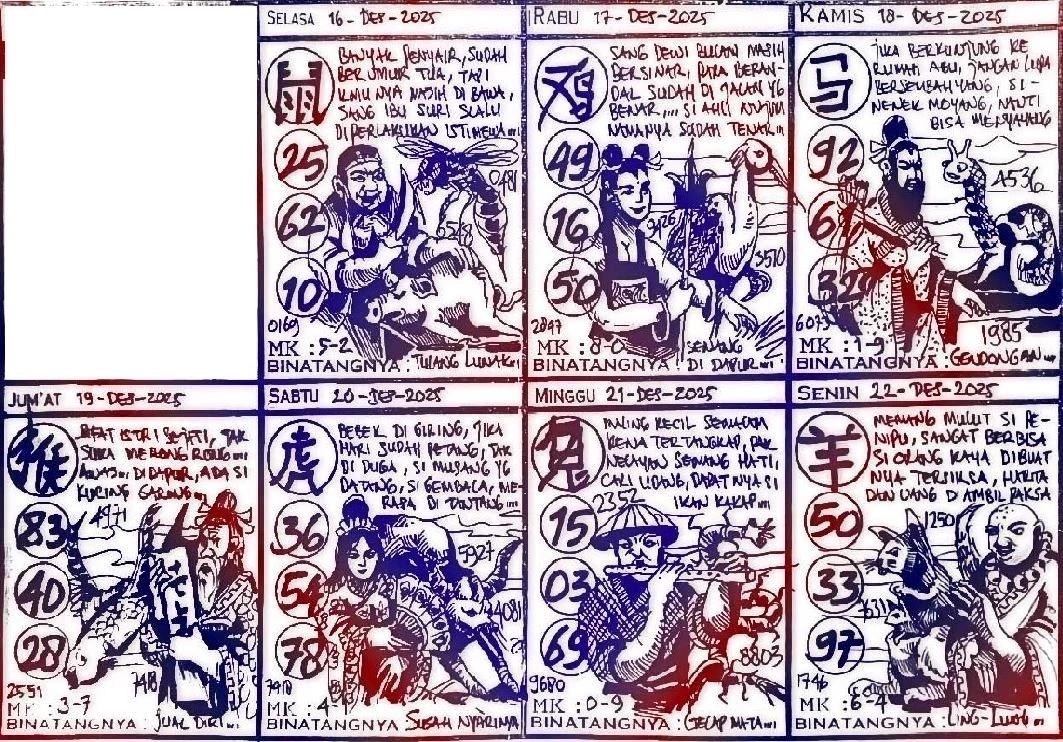 SELASA 16-DES-2025
鼠
BANYAK PENYAIR, SUDAH
BERUMUR TUA, TAPI
ILMU NYA MASIH DI BAWA,
SANG IBU SURI SLALU
DIPERLAKUKAN ISTIMEWA...
25
62
10
0481
6528
0169
MK : 5-2
BINATANGNYA : TULANG LUNAK...
RABU 17-DES-2025
鸡
SANG DEWI BULAN MASIH
BERSINAR, PARA BERAN-
DAL SUDAH DI JALAN YG
BENAR,... SI AHLI NUJUM
NAMANYA SUDAH TENAR...
49
16
50
3426
3510
2897
MK : 8-0
BINATANGNYA : SENANG
DI DAPUR...
KAMIS 18-DES-2025
马
JIKA BERKUNJUNG KE
RUMAH ABU, JANGAN LUPA
BERSEMBAHYANG, SI-
NENEK MOYANG, NANTI
BISA MENYAYANG
92
6
32
A536
6073
1985
MK : 1-9
BINATANGNYA : GENDONGAN...
JUM'AT 19-DES-2025
猴
SIFAT ISTRI SEJATI, TAK
SUKA MERONG RONG...
AWAS... DI DAPUR, ADA SI
KUCING GARONG...
83
40
28
4971
748
2551
MK : 3-7
BINATANGNYA : JUAL DIRI...
SABTU 20-DES-2025
虎
BEBEK DI GIRING, JIKA
HARI SUDAH PETANG, TAK
DI DUGA, SI MUSANG YG
DATANG, SI GEMBALA, ME-
RASA DI TANTANG...
36
54
78
5927
4081
7918
MK : 4-1
BINATANGNYA : SUSAH NYARINYA
MINGGU 21-DES-2025
兔
MALING KECIL SEMACAM
KENA TERTANGKAP, PAK
NELAYAN SENANG HATI,
CARI UDANG, DAPAT NYA SI
IKAN KAKAP...
15
03
69
2352
8803
9680
MK : 0-9
BINATANGNYA : GELAP MATA...
SENIN 22-DES-2025
羊
MEMANG MULUT SI PE-
NIPU, SANGAT BERBISA
SI ORANG KAYA DIBUAT
NYA TERSIKSA, HARTA
DAN UANG DI AMBIL PAKSA
50
33
97
1250
6311
1746
MK : 6-4
BINATANGNYA : LING-LUNG...